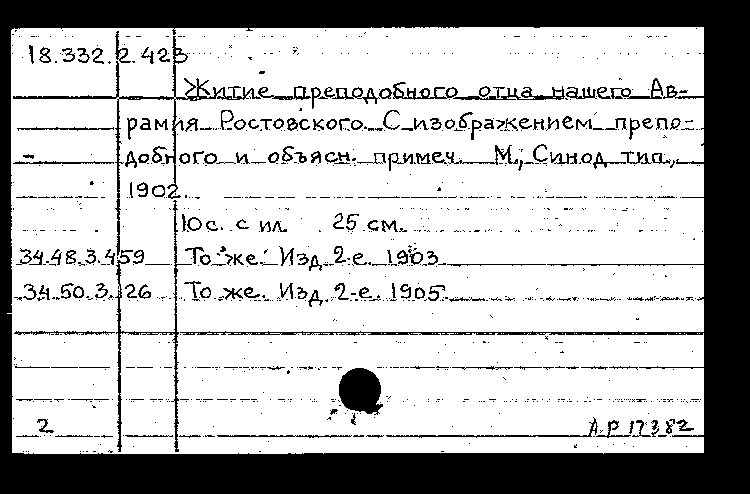 18.332.2.423
Житие преподобного отца нашего Ав-
рамия Ростовского. С изображением препо-
добного и объясн. примеч. М., Синод. тип.,
1902.
10 с. с ил. 25 см.
34.48.3.459 То же. Изд. 2-е. 1903
34.50.3.126 То же. Изд. 2-е. 1905.
2 АР 17382